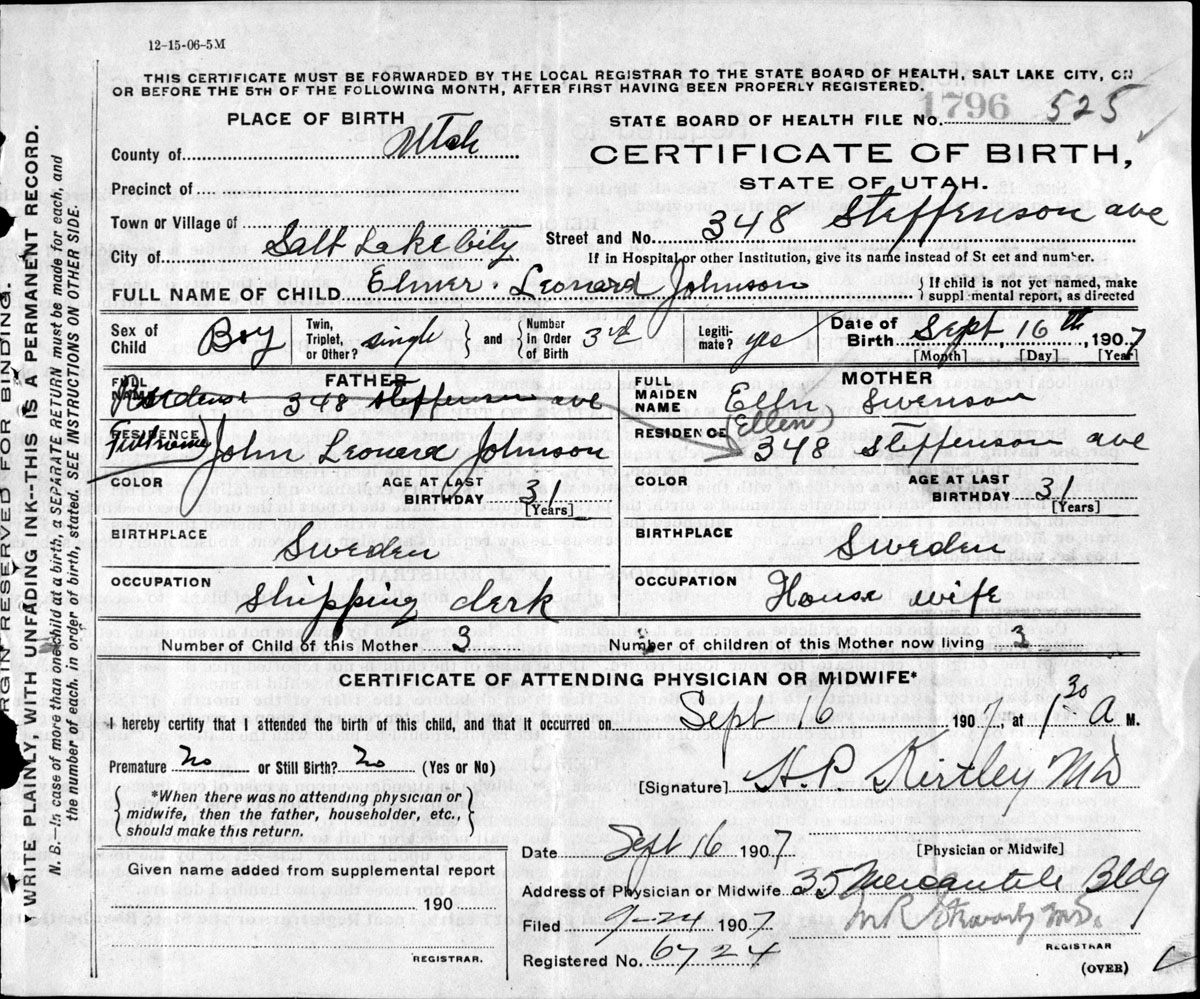 12-15-06-5M
THIS CERTIFICATE MUST BE FORWARDED BY THE LOCAL REGISTRAR TO THE STATE BOARD OF HEALTH, SALT LAKE CITY, ON
OR BEFORE THE 5TH OF THE FOLLOWING MONTH, AFTER FIRST HAVING BEEN PROPERLY REGISTERED.
PLACE OF BIRTH
STATE BOARD OF HEALTH FILE NO. 1796 525
County of Utah
CERTIFICATE OF BIRTH,
Precinct of
STATE OF UTAH.
Town or Village of
Street and No. 348 Steffenson ave
City of Salt Lake City
If in Hospital or other Institution, give its name instead of St eet and number.
FULL NAME OF CHILD Elmer Leonard Johnson
{ If child is not yet named, make
suppl mental report, as directed
Sex of Child Boy
Twin, Triplet, or Other? single } and { Number in Order of Birth 3rd
Legiti-mate? yes
Date of Birth Sept 16th 1907
[Month] [Day] [Year]
FATHER
MOTHER
FULL NAME Residence 348 Steffenson ave
FULL MAIDEN NAME Elln Swenson
(Ellen)
RESIDENCE Full name John Leonard Johnson
RESIDENCE 348 Steffenson ave
COLOR
AGE AT LAST BIRTHDAY 31
[Years]
COLOR
AGE AT LAST BIRTHDAY 31
[Years]
BIRTHPLACE Sweden
BIRTHPLACE Sweden
OCCUPATION Shipping clerk
OCCUPATION House wife
Number of Child of this Mother 3
Number of children of this Mother now living 3
CERTIFICATE OF ATTENDING PHYSICIAN OR MIDWIFE*
I hereby certify that I attended the birth of this child, and that it occurred on Sept 16 1907, at 1 30 A M.
Premature No or Still Birth? No (Yes or No)
[Signature] H.P. Kirtley MD
{ *When there was no attending physician or
midwife, then the father, householder, etc.,
should make this return. }
Date Sept 16 1907
[Physician or Midwife]
Given name added from supplemental report
190
REGISTRAR.
Address of Physician or Midwife 35 Mercantile Bldg
Filed 9-24 1907
M.D.
REGISTRAR
Registered No. 6724
(OVER)
RGIN RESERVED FOR BINDING.
WRITE PLAINLY, WITH UNFADING INK--THIS IS A PERMANENT RECORD.
N. B.—In case of more than one child at a birth, a SEPARATE RETURN must be made for each, and
the number of each, in order of birth, stated. SEE INSTRUCTIONS ON OTHER SIDE.